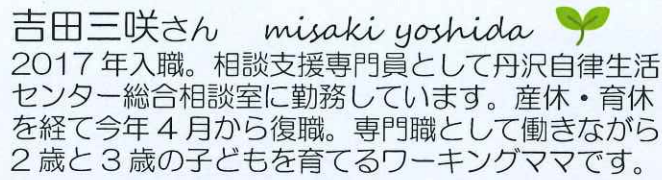 吉田三咲さん misaki yoshida
2017年入職。相談支援専門員として丹沢自律生活
センター総合相談室に勤務しています。産休・育休
を経て今年4月から復職。専門職として働きながら
2歳と3歳の子どもを育てるワーキングママです。